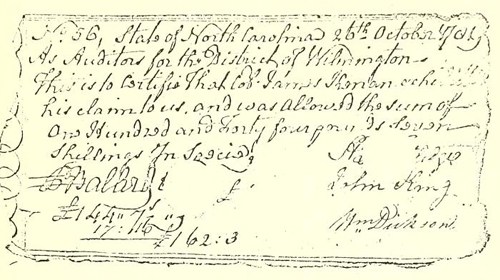 No. 56, State of North Carolina 26th October 1781,
As Auditors for the District of Wilmington
This is to Certify That Col. James Kenan
his claim to us, and was Allowed the sum of
One Hundred and Forty four pounds Seven
Shillings In Specie,
John King
£144" 7s
17:16
£162:3
Wm Dickson